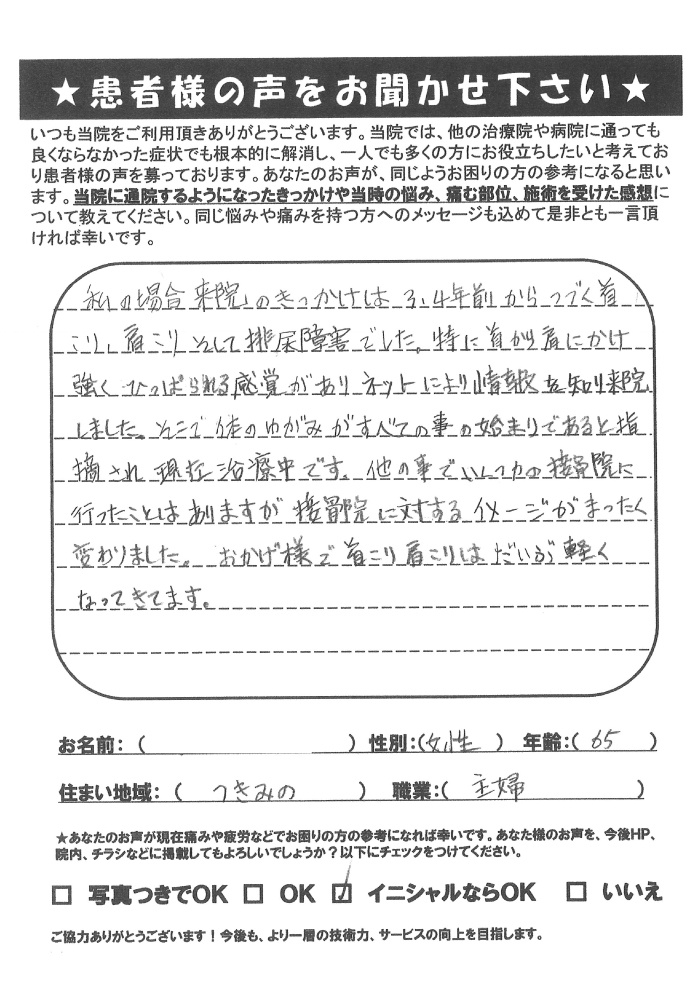 ★患者様の声をお聞かせ下さい★
いつも当院をご利用頂きありがとうございます。当院では、他の治療院や病院に通っても
良くならなかった症状でも根本的に解消し、一人でも多くの方にお役立ちしたいと考えてお
り患者様の声を募っております。あなたのお声が、同じようお困りの方の参考になると思い
ます。当院に通院するようになったきっかけや当時の悩み、痛む部位、施術を受けた感想に
ついて教えてください。同じ悩みや痛みを持つ方へのメッセージも込めて是非とも一言頂
ければ幸いです。
私の場合来院のきっかけは3、4年前からつづく首
こり、肩こりそして排尿障害でした。特に首から肩にかけ
強くひっぱられる感覚がありネットにより情報を知り来院
しました。そこで体のゆがみがすべての事の始まりであると指
摘され現在治療中です。他の事でいくつかの接骨院に
行ったことはありますが接骨院に対するイメージがまったく
変わりました。おかげ様で首こり肩こりはだいぶ軽く
なってきてます。
お名前：（　　　）性別：（女性）年齢：（65）
住まい地域：（つきみの）職業：（主婦）
★あなたのお声が現在痛みや疲労などでお困りの方の参考になれば幸いです。あなた様のお声を、今後HP、
院内、チラシなどに掲載してもよろしいでしょうか？以下にチェックをつけてください。
□ 写真つきでOK □ OK ☑ イニシャルならOK □ いいえ
ご協力ありがとうございます！今後も、より一層の技術力、サービスの向上を目指します。